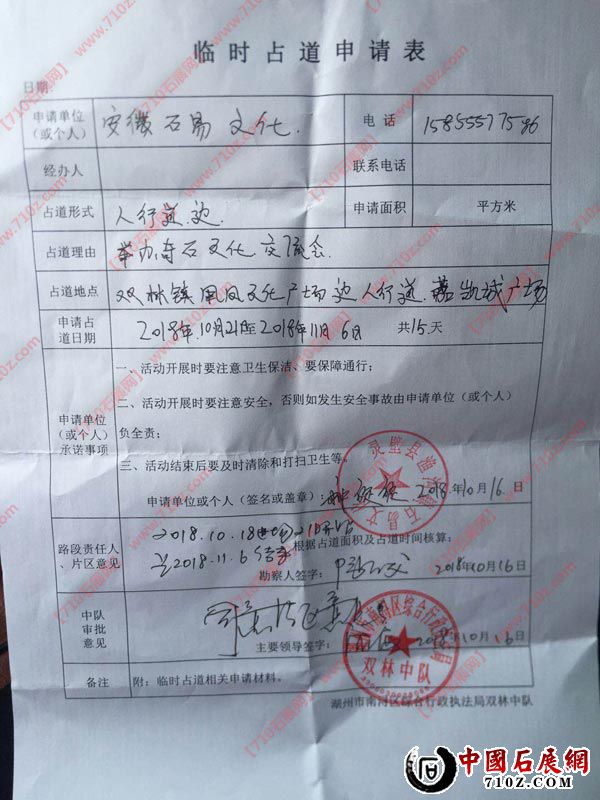 临时占道申请表
日期:
申请单位（或个人） 安徽石易文化. 电话 15855577586
经办人 联系电话
占道形式 人行道边. 申请面积 平方米
占道理由 举办奇石文化交流会.
占道地点 双林镇凤凰文化广场边人行道.嘉凯城广场
申请占道日期 2018年10月21日至2018年11月6日 共15天
申请单位（或个人）承诺事项
一、活动开展时要注意卫生保洁、要保障通行;
二、活动开展时要注意安全，否则如发生安全事故由申请单位（或个人）
负全责;
三、活动结束后要及时清除和打扫卫生等。
申请单位或个人（签名或盖章）: 2018年10月16日
路段责任人、片区意见
2018.10.18
至2018.11.6 根据占道面积及占道时间核算:
勘察人签字: 2018年10月16日
中队审批意见
主要领导签字: 2018年10月16日
双林中队
备注 附: 临时占道相关申请材料。
湖州市南浔区综合行政执法局双林中队
【710z石展网】www.710z.com
中國石展网
710Z.COM